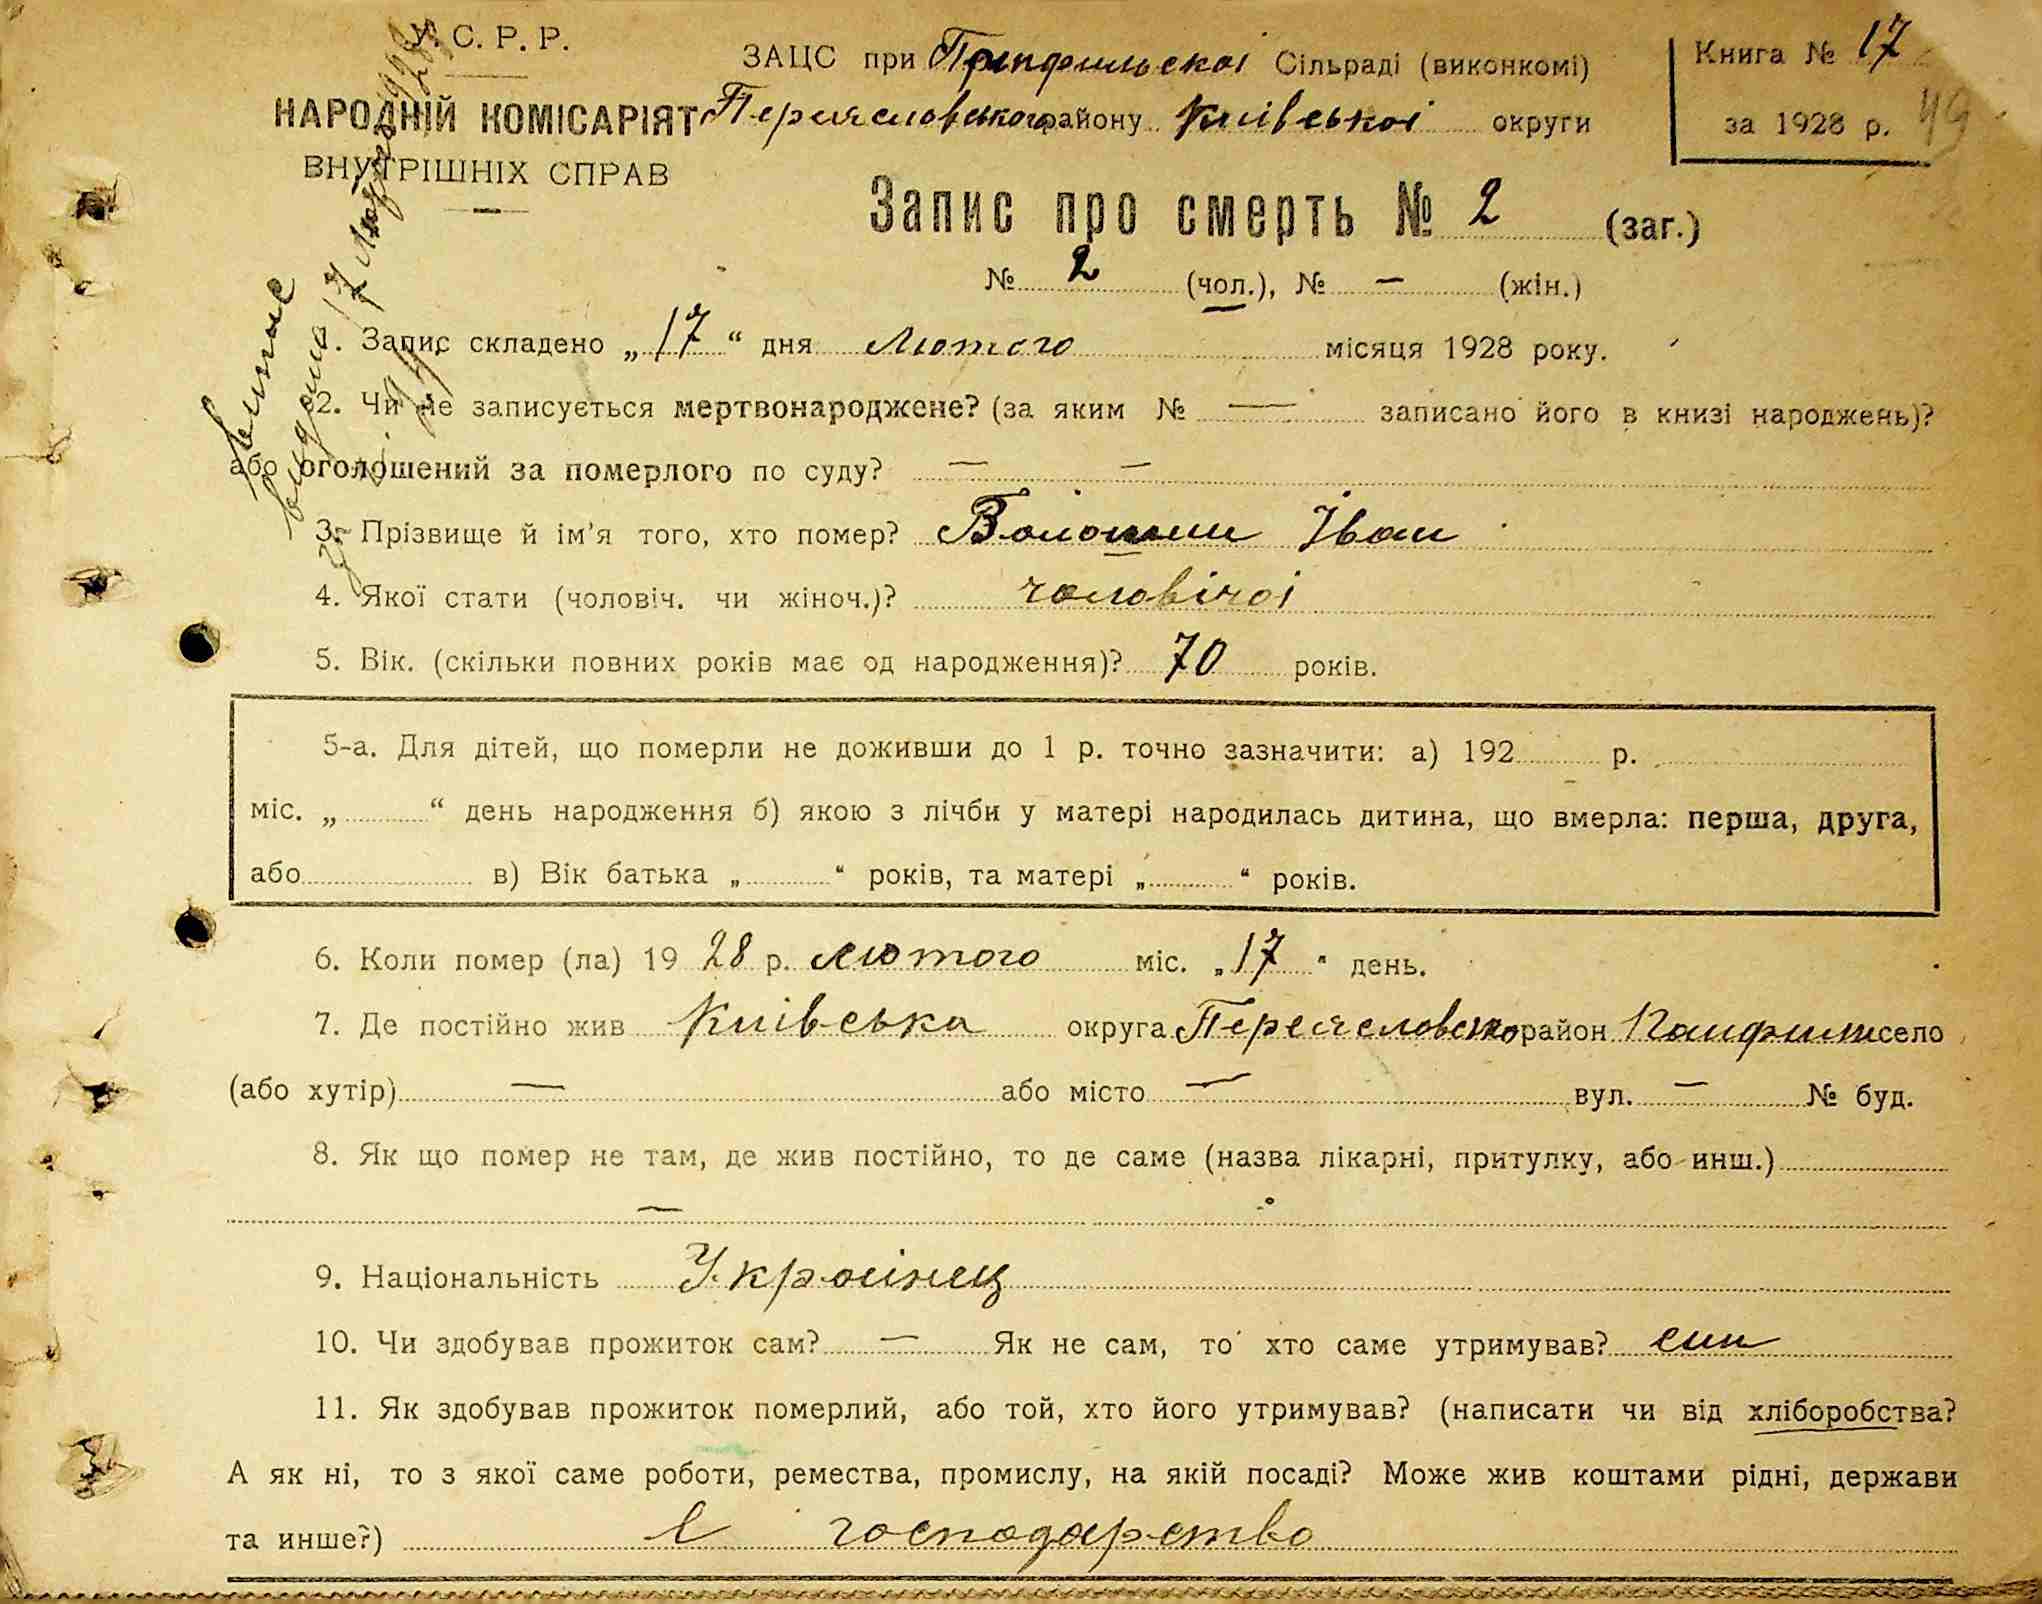 У. С. Р. Р.
НАРОДНІЙ КОМІСАРІЯТ
ВНУТРІШНІХ СПРАВ
ЗАЦС при Панфильскоі Сільраді (виконкомі)
Переяславського району Київськоі округи
Книга № 17
за 1928 р. 49
Запис про смерть № 2 (заг.)
№ 2 (чол.), № — (жін.)
Випис
видана 17 Лютого 1928
1. Запис складено „17“ дня Лютого місяця 1928 року.
2. Чи не записується мертвонароджене? (за яким № — записано його в книзі народжень)?
або оголошений за померлого по суду? — —
3. Прізвище й ім'я того, хто помер? Волошин Іван
4. Якої стати (чоловіч. чи жіноч.)? чоловічоі
5. Вік. (скільки повних років має од народження)? 70 років.
5-а. Для дітей, що померли не доживши до 1 р. точно зазначити: а) 192 р.
міс. „ “ день народження б) якою з лічби у матері народилась дитина, що вмерла: перша, друга,
або в) Вік батька „ “ років, та матері „ “ років.
6. Коли помер (ла) 1928 р. лютого міс. „17“ день.
7. Де постійно жив Київська округа Переяславського район Панфили село
(або хутір) — або місто — вул. — № буд.
8. Як що помер не там, де жив постійно, то де саме (назва лікарні, притулку, або инш.)
—
9. Національність Українец
10. Чи здобував прожиток сам? — Як не сам, то хто саме утримував? син
11. Як здобував прожиток померлий, або той, хто його утримував? (написати чи від хліборобства?
А як ні, то з якої саме роботи, ремества, промислу, на якій посаді? Може жив коштами рідні, держави
та инше?) господарство